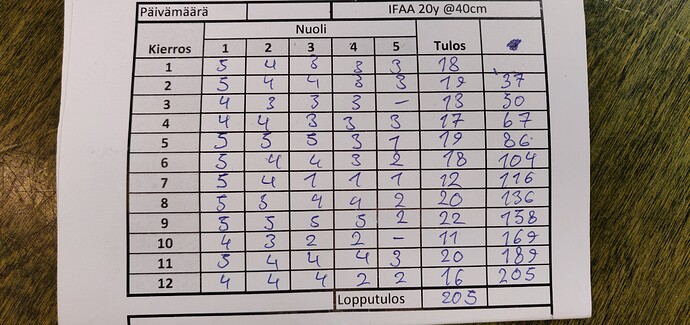 Päivämäärä IFAA 20y @40cm
Nuoli
Kierros 1 2 3 4 5 Tulos
1 5 4 3 3 3 18
2 5 4 4 3 3 19 37
3 4 3 3 3 – 13 50
4 4 4 3 3 3 17 67
5 5 5 5 3 1 19 86
6 5 4 4 3 2 18 104
7 5 4 1 1 1 12 116
8 5 5 4 4 2 20 136
9 5 5 5 5 2 22 158
10 4 3 2 2 – 11 169
11 5 4 4 4 3 20 189
12 4 4 4 2 2 16 205
Lopputulos 205